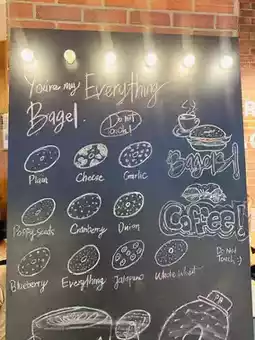 You're my Everything
Bagel.
Do Not
Touch!
Plain
Cheese
Garlic
Bagel!
Poppy seeds
Cranberry
Onion
Coffee!
Do Not
Touch :)
Blueberry
Everything
Jalapeno
Whole Wheat